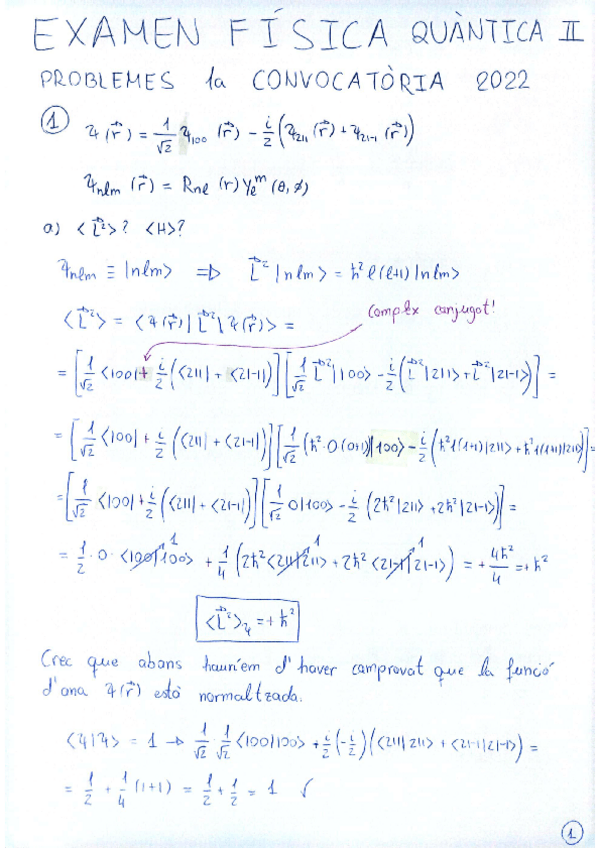 EXAMEN FÍSICA QUÀNTICA II
PROBLEMES 1a CONVOCATÒRIA 2022
① Ψ(r⃗) = 1/√2 Ψ₁₀₀(r⃗) - i/2 (Ψ₂₁₁(r⃗) + Ψ₂₁₋₁(r⃗))
Ψnlm(r⃗) = Rnl(r) Yₗᵐ(θ,ϕ)
a) <L⃗²>? <H>?
Ψnlm ≡ |nlm> ⇒ L⃗²|nlm> = ħ² l(l+1)|nlm>
Complex conjugat!
<L⃗²> = <Ψ(r⃗)|L⃗²|Ψ(r⃗)> =
= [1/√2 <100| + i/2 (<211| + <21-1|)] [1/√2 L⃗²|100> - i/2 (L⃗²|211> + L⃗²|21-1>)] =
= [1/√2 <100| + i/2 (<211| + <21-1|)] [1/√2 (ħ²·0(0+1)|100> - i/2 (ħ²1(1+1)|211> + ħ²1(1+1)|21-1>)] =
= [1/√2 <100| + i/2 (<211| + <21-1|)] [1/√2 0|100> - i/2 (2ħ²|211> + 2ħ²|21-1>)] =
= 1/2 · 0 · <100|100> 1 + 1/4 (2ħ² <211|211> 1 + 2ħ² <21-1|21-1> 1) = + 4ħ²/4 = + ħ²
<L⃗²>Ψ = + ħ²
Crec que abans hauríem d'haver comprovat que la funció
d'ona Ψ(r⃗) està normalitzada.
<Ψ|Ψ> = 1 → 1/√2 · 1/√2 <100|100> + i/2 (-i/2) (<211|211> + <21-1|21-1>) =
= 1/2 + 1/4 (1+1) = 1/2 + 1/2 = 1 ✓
①